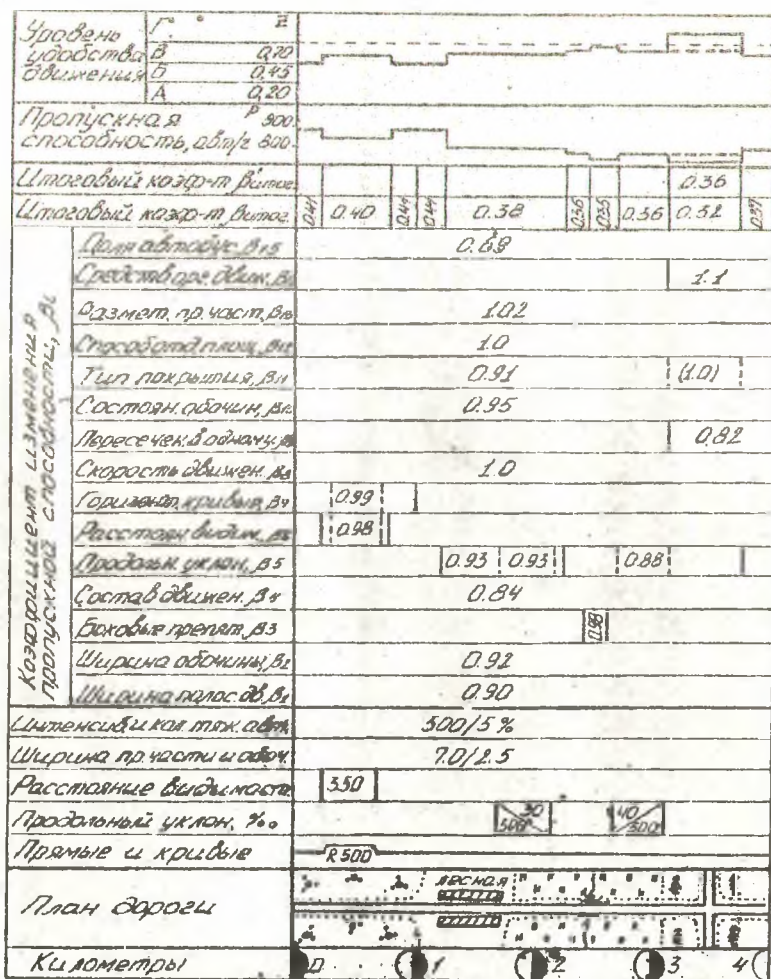 Уровень удобства движения
Г z
В 0,70
Б 0,45
А 0,20
Пропускная способность, авт/г P 900 800
Итоговый коэф-т βитог. 0.36
Итоговый коэф-т βитог. 0.41 0.40 0.44 0.41 0.38 0.36 0.35 0.36 0.32 0.37
Коэффициент изменения пропускной способности, βi
Доля автобус. β15
Средств орг. движ. 1.1
Размет. пр. част. 1.02
Способ отд. площ. 1.0
Тип покрытия, β11 0.91 (1.0)
Состоян. обочин, 0.95
Пересечен. в одному. 0.82
Скорость движен. 1.0
Горизонт. кривые, 0.99
Расстоян. видим. 0.98
Продольн. уклон, β5 0.93 0.93 0.88
Состав движен. β4 0.84
Боковые препят. β3 0.98
Ширина обочины, β2 0.92
Ширина полос. дв. β1 0.90
Интенсив. и кол. тяж. авт. 500/5 %
Ширина пр. части и обоч. 7.0/2.5
Расстояние видимости 350
Продольный уклон, ‰ 30 500 40 300
Прямые и кривые R500
План дороги лесная
Километры 0 1 2 3 4